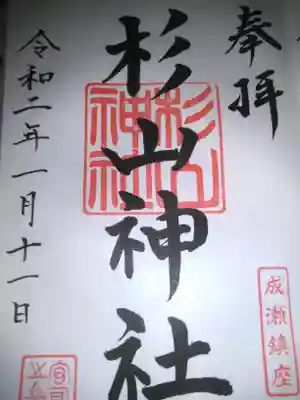 奉拝
杉山神社
杉山
神社
成瀬鎮座
令和二年一月十一日